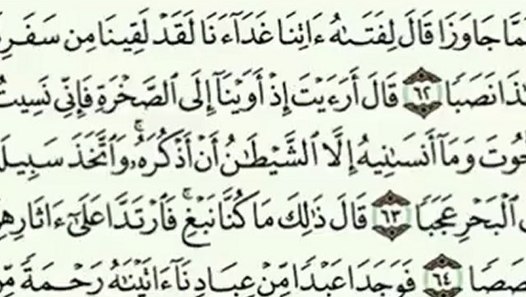 مَّا جَاوَزَا قَالَ لِفَتَىٰهُ ءَاتِنَا غَدَآءَنَا لَقَدْ لَقِينَا مِن سَفَرِ
ـٰذَا نَصَبًا ٦٢ قَالَ أَرَءَيْتَ إِذْ أَوَيْنَآ إِلَى ٱلصَّخْرَةِ فَإِنِّى نَسِيتُ
حُوتَ وَمَآ أَنسَىٰنِيهُ إِلَّا ٱلشَّيْطَـٰنُ أَنْ أَذْكُرَهُۥۚ وَٱتَّخَذَ سَبِيلَ
ٱلْبَحْرِ عَجَبًا ٦٣ قَالَ ذَٰلِكَ مَا كُنَّا نَبْغِۚ فَٱرْتَدَّا عَلَىٰٓ ءَاثَارِهِ
صَصًا ٦٤ فَوَجَدَا عَبْدًا مِّنْ عِبَادِنَآ ءَاتَيْنَـٰهُ رَحْمَةً مِّنْ